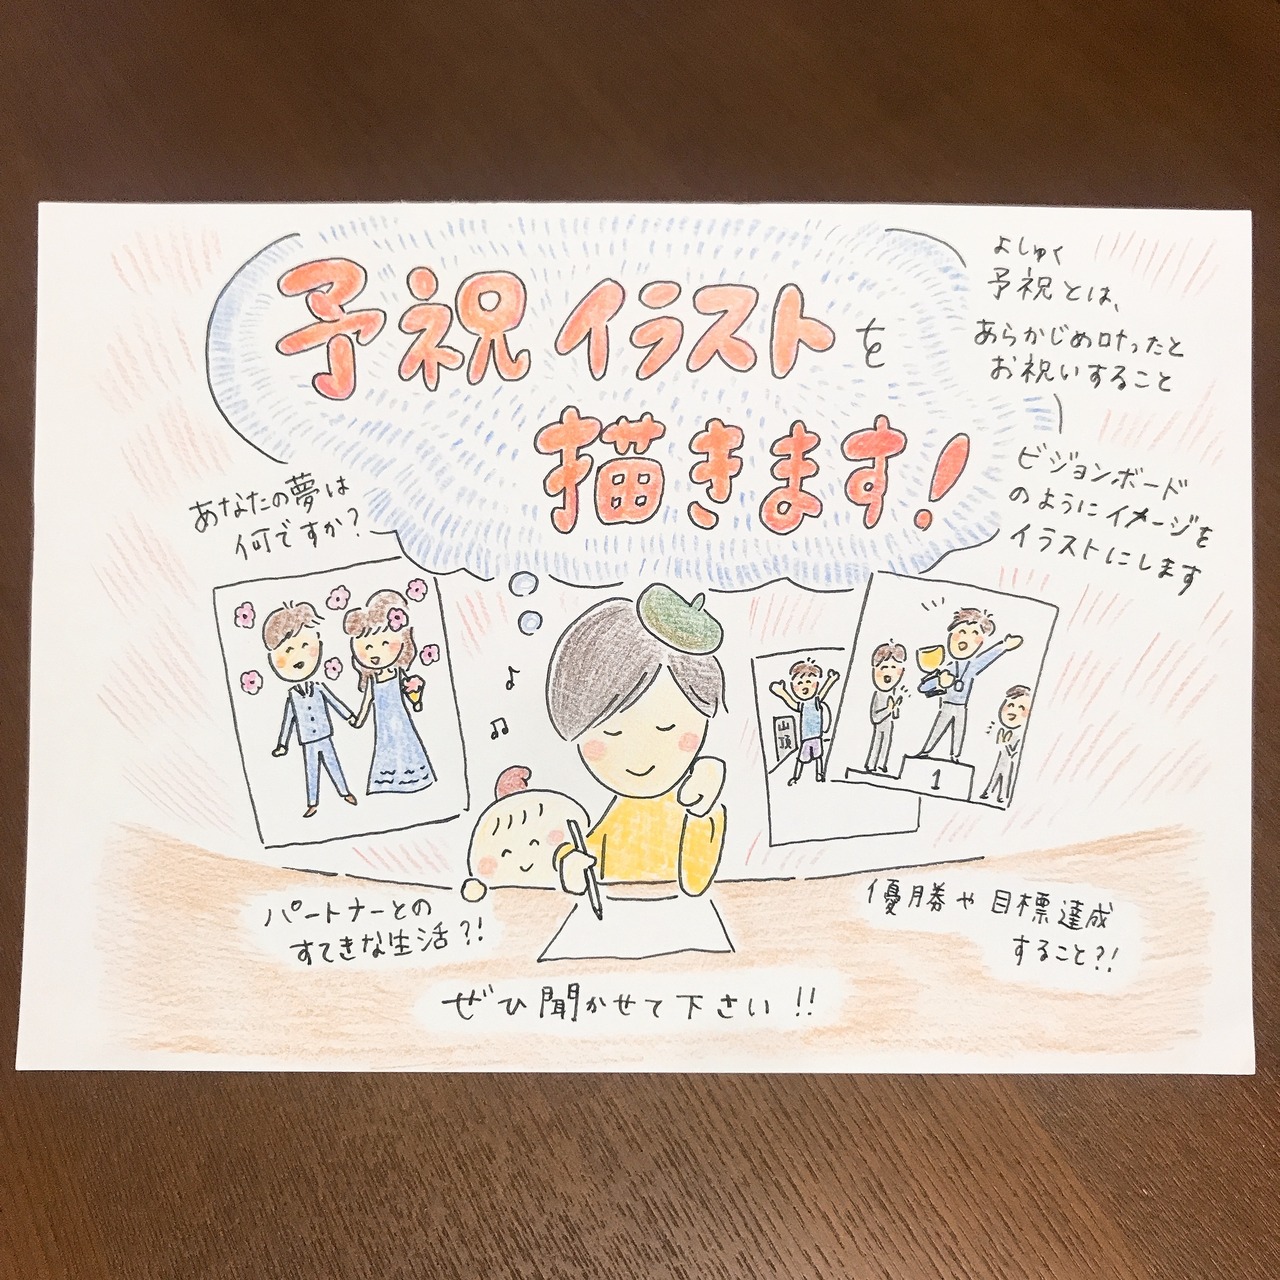 予祝イラストを
描きます!
よしゅく
予祝とは、
あらかじめ叶ったと
お祝いすること
ビジョンボード
のようにイメージを
イラストにします
あなたの夢は
何ですか?
山頂
1
パートナーとの
すてきな生活?!
優勝や目標達成
すること?!
ぜひ聞かせて下さい!!